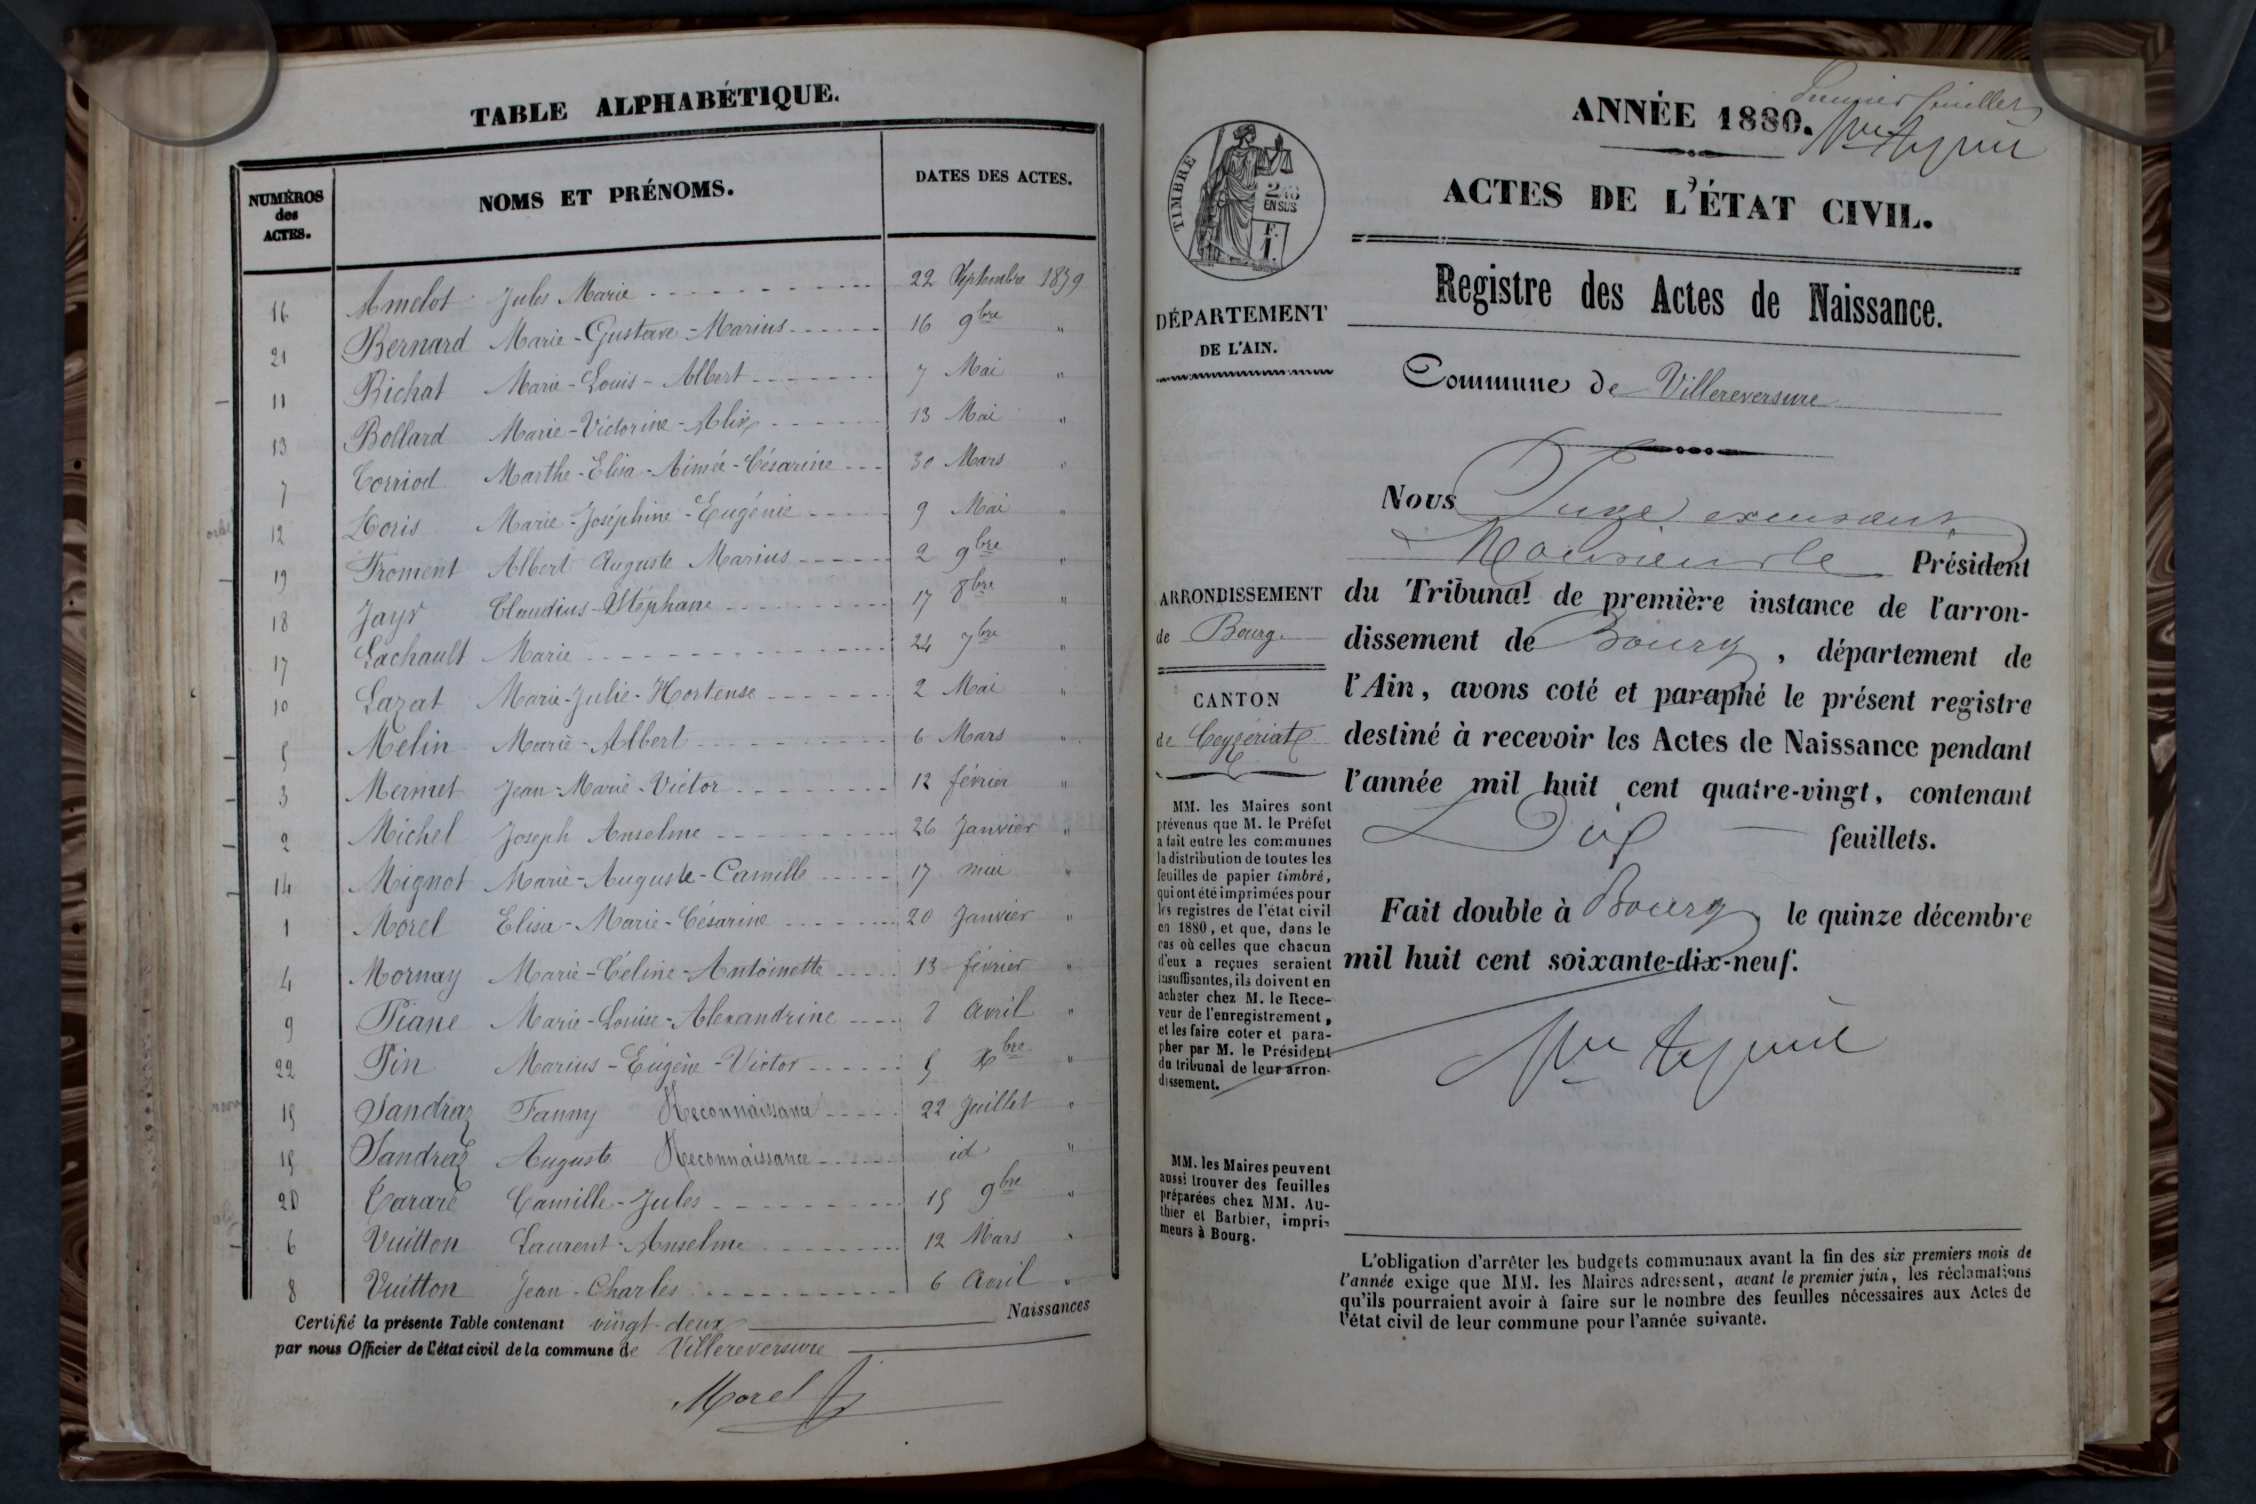 TABLE ALPHABÉTIQUE.
NUMÉROS des ACTES.
NOMS ET PRÉNOMS.
DATES DES ACTES.
16 Amelot Jules Marie 22 Septembre 1879
21 Bernard Marie-Gustave-Marius 16 9bre "
11 Bichat Marie-Louis-Albert 7 Mai "
13 Bollard Marie-Victorine-Alix 13 Mai "
7 Corriod Marthe-Elisa-Aimée-Césarine 30 Mars "
12 Loris Marie-Joséphine-Eugénie 9 Mai "
19 Froment Albert Auguste Marius 2 9bre "
18 Jayr Claudius-Stéphane 17 8bre "
17 Lachault Marie 24 7bre "
10 Lazat Marie-Julie-Hortense 2 Mai "
5 Melin Marie-Albert 6 Mars "
3 Mermet Jean-Marie-Victor 12 février "
2 Michel Joseph Anselme 26 Janvier "
14 Mignot Marie-Auguste-Camille 17 mai "
1 Morel Elisa-Marie-Césarine 20 Janvier "
4 Mornay Marie-Céline-Antoinette 13 février "
9 Piane Marie-Louise-Alexandrine Avril "
22 Pin Marius-Eugène-Victor 5 Xbre "
15 Sandraz Fanny Reconnaissance 22 Juillet "
15 Sandraz Auguste Reconnaissance id "
20 Tararé Camille-Jules 15 9bre "
6 Vuitton Laurent-Anselme 12 Mars "
8 Vuitton Jean-Charles 6 Avril "
Certifié la présente Table contenant vingt-deux Naissances
par nous Officier de l'état civil de la commune de Villereversure
Morel
Premier feuillet
ANNÉE 1880.
ACTES DE L'ÉTAT CIVIL.
Registre des Actes de Naissance.
TIMBRE
2/10
EN SUS
F.
1.
DÉPARTEMENT
DE L'AIN.
ARRONDISSEMENT
de Bourg.
CANTON
de Ceyzériat
MM. les Maires sont
prévenus que M. le Préfet
a fait entre les communes
la distribution de toutes les
feuilles de papier timbré,
qui ont été imprimées pour
les registres de l'état civil
en 1880, et que, dans le
cas où celles que chacun
d'eux a reçues seraient
insuffisantes, ils doivent en
acheter chez M. le Rece-
veur de l'enregistrement,
et les faire coter et para-
pher par M. le Président
du tribunal de leur arron-
dissement.
MM. les Maires peuvent
aussi trouver des feuilles
préparées chez MM. Au-
thier et Barbier, impri-
meurs à Bourg.
Commune de Villereversure
Nous Juge
Monsieur le Président
du Tribunal de première instance de l'arron-
dissement de Bourg, département de
l'Ain, avons coté et paraphé le présent registre
destiné à recevoir les Actes de Naissance pendant
l'année mil huit cent quatre-vingt, contenant
Dix feuillets.
Fait double à Bourg, le quinze décembre
mil huit cent soixante-dix-neuf.
L'obligation d'arrêter les budgets communaux avant la fin des six premiers mois de
l'année exige que MM. les Maires adressent, avant le premier juin, les réclamations
qu'ils pourraient avoir à faire sur le nombre des feuilles nécessaires aux Actes de
l'état civil de leur commune pour l'année suivante.